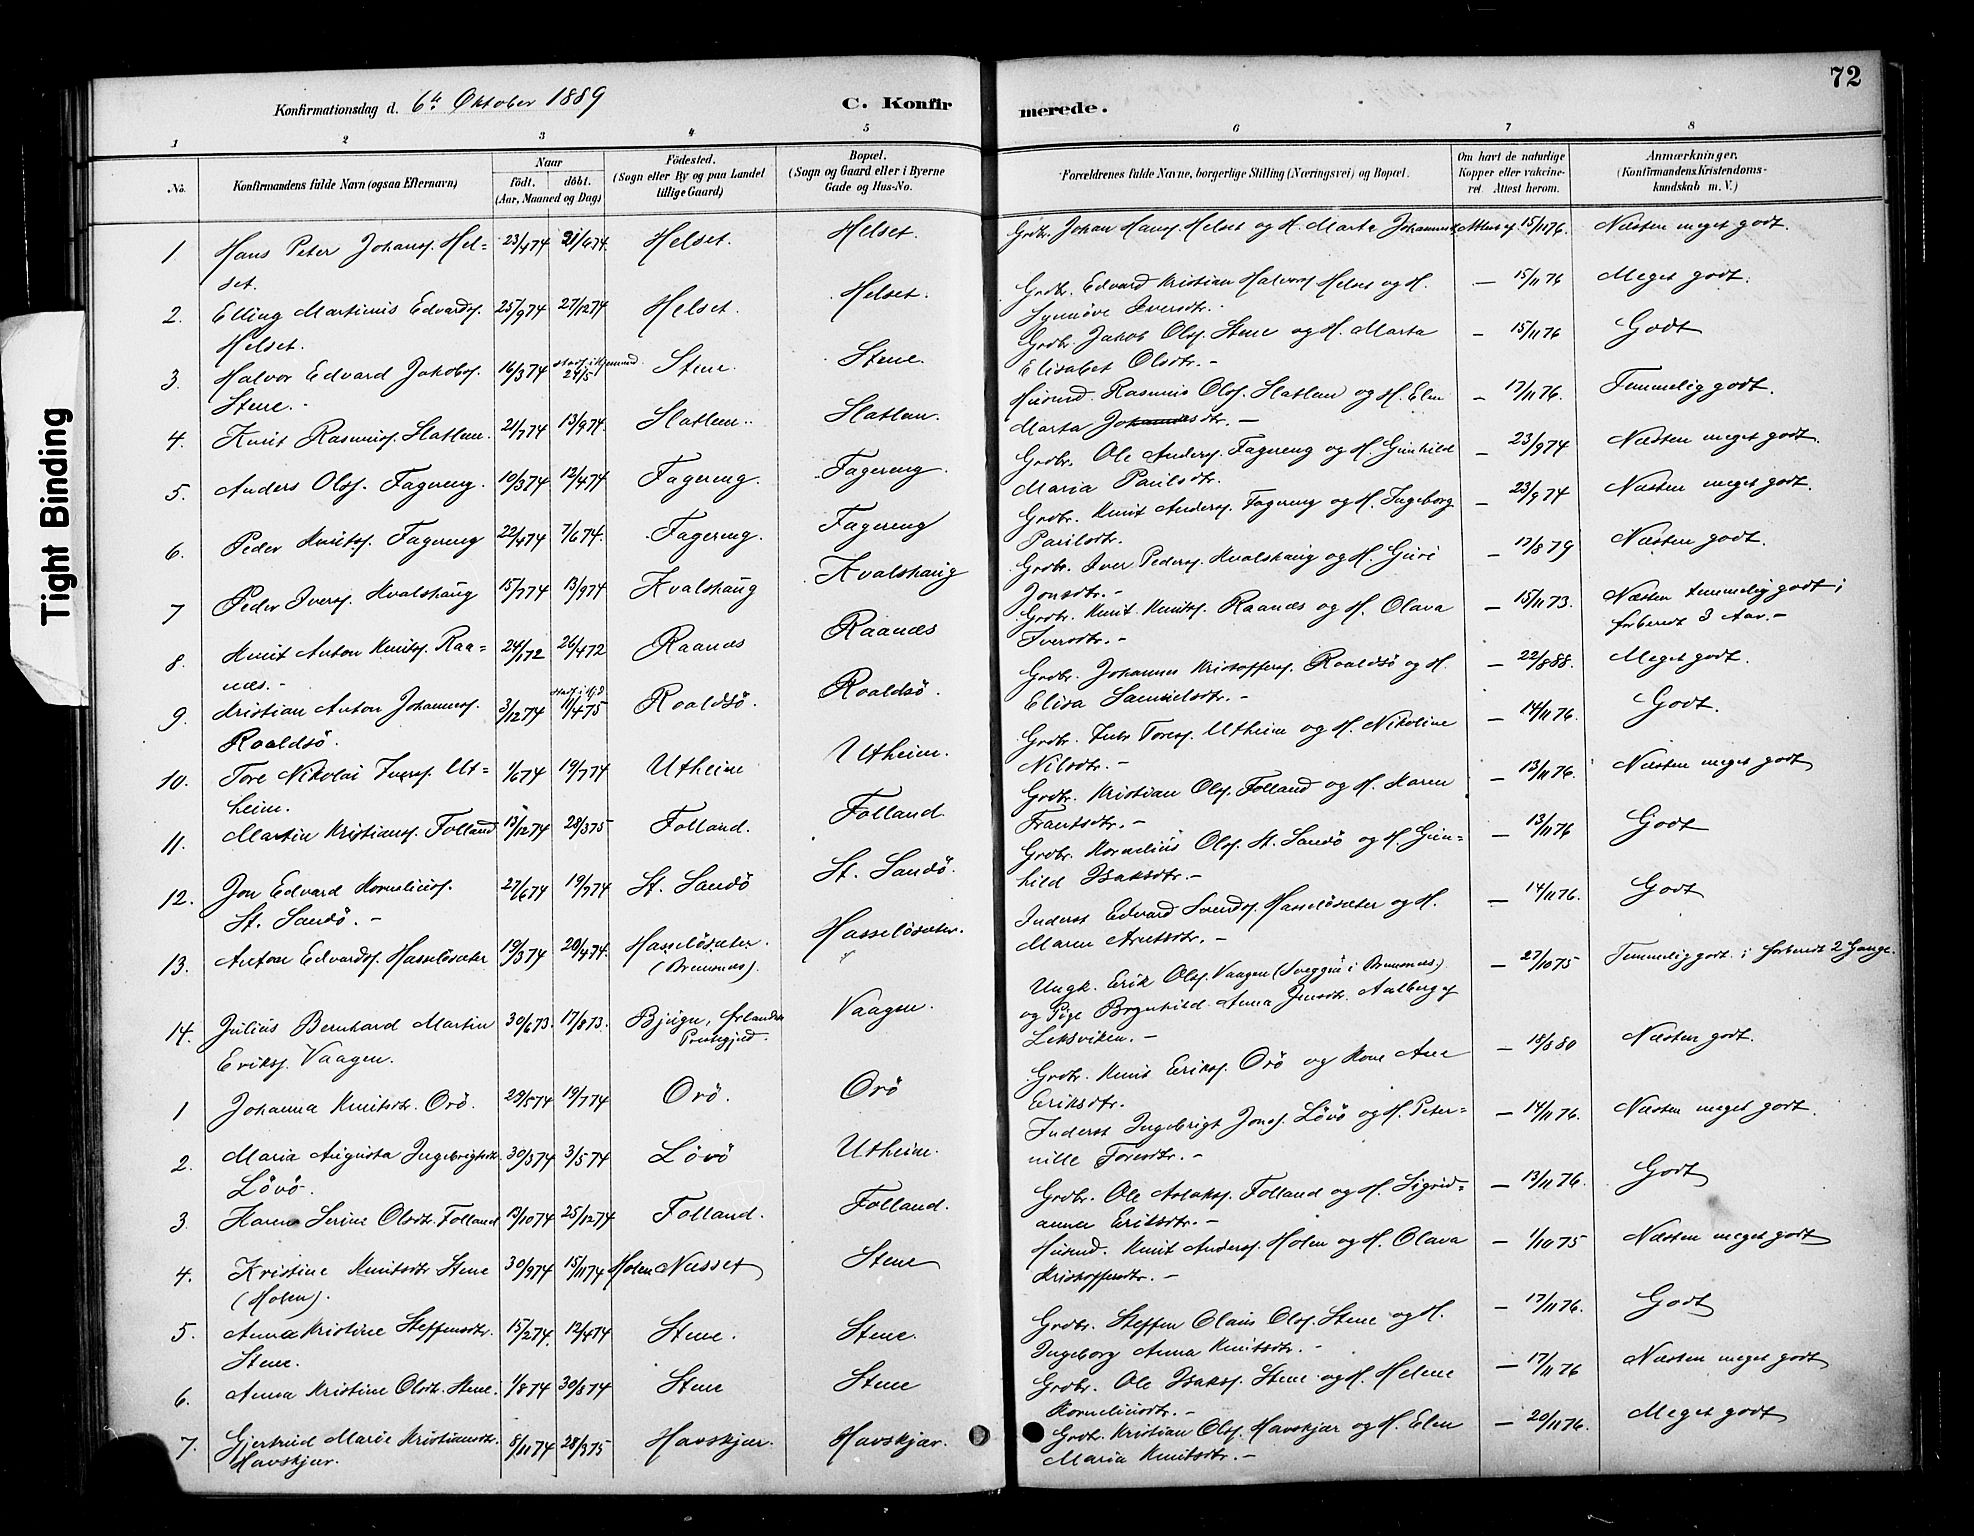 72
Konfirmationsdag d. 6te Oktober 1889 C. Konfirmerede.
1 2 3 4 5 6 7 8
No. Konfirmandens fulde Navn (ogsaa Efternavn) Naar født. døbt. (Aar, Maaned og Dag) Fødested. (Sogn eller By og paa Landet tillige Gaard.) Bopæl. (Sogn og Gaard eller i Byerne Gade og Hus-No. Forældrenes fulde Navne, borgerlige Stilling (Næringsvei) og Bopæl. Om havt de naturlige Kopper eller vakcineret. Attest herom. Anmærkninger. (Konfirmandens Kristendomskundskab m. V.)
1 Hans Peter Johans. Helset. 23/4 74 21/6 74. Helset. Helset. Grdbr. Johan Hans. Helset og H. Marta 15/11 76. Næsten meget godt.
2. Elling Martinus Edvards. Helset. 25/9 74 27/12 74 Helset. Helset. Grdbr. Edvard Kristian Halvors. Helset og H. Synnöve Iversdtr. — 15/11 76 Meget godt.
3. Halvor Edvard Jakobs. Stene. 16/3 74 24/5 Stene. Stene. Grdbr. Jakob Ols. Stene og H. Marta Elisabet Olsdtr. — 15/11 76 Godt
4. Knut Rasmus. Slatlem. 21/7 74 13/9 74. Slatlem. Slatlem. Husmd. Rasmus Ols. Slatlem og H. Elen Marta — 17/11 76. Temmelig godt.
5. Anders Ols. Fagereng. 10/3 74 12/4 74 Fagereng. Fagereng. Grdbr. Ole Anders. Fagereng og H. Gunhild Maria Paulsdtr. — 23/9 74 Næsten meget godt.
6. Peder Knuts. Fagereng 22/4 74 7/6 74. Fagereng. Fagereng Grdbr. Knut Anders. Fagereng og H. Ingeborg Paulsdtr. — 23/9 74 Næsten meget godt.
7 Peder Ivers. Kvalshaug 15/7 74 13/9 74 Kvalshaug Kvalshaug Grdbr. Iver Peders. Kvalshaug og H. Guri Jonsdtr. — 17/8 79 Næsten godt.
8. Knut Anton Knuts. Raanes. 24/1 72 26/4 72 Raanes Raanes Grdbr. Knut Knuts. Raanes og H. Olava Iversdtr. — 15/11 73. Næsten temmelig godt; forberedt 3 Aar.
9. Kristian Anton Johannes. Roaldsö. 3/12 74 11/4 75 Roaldsö. Roaldsö. Grdbr. Johannes Kristoffers. Roaldsö og H. Elisa Samuelsdtr. — 22/8 88. Meget godt.
10. Tore Nikolai Utheim. 1/6 74 19/7 74 Utheim Utheim. Grdbr. Tores. Utheim og H. Nikoline Nilsdtr. — 14/11 76. Godt.
11. Martin Kristians. Folland 13/12 74 28/3 75 Folland. Folland. Grdbr. Kristian Ols. Folland og H. Karen Frantsdtr. — 13/11 76. Næsten meget godt
12. Jon Edvard Kornelius. St. Sandö. 27/6 74 19/7 74 St. Sandö St. Sandö. Grdbr. Kornelius Ols. St. Sandö og H. Gunhild Isaksdtr. — 13/11 76 Godt
13. Anton Edvards. Hasselösæter 19/3 74 20/4 74. Hasselösæter. (Bremsnes). Hasselösæter. Inderst Edvard Svends. Hasselösæter og H. Maren Arntsdtr. — 14/11 76. Godt
14. Julius Bernhard Martin Eriks. Vaagen. 30/6 73. 17/8 73. Bjugn, Ørlandets Prestegjeld. Vaagen. Ungk. Erik Ols. Vaagen (Sveggen i Bremsnes.) og Pige Brynhild Anna Jensdtr. Aalberg af Leksviken. — 27/10 75 Temmelig godt; forberedt 2 Gange.
1 Johanna Knutsdtr. Orö. 29/5 74 19/7 74 Orö. Orö Grdbr. Knut Eriks. Orö og Kone Ane Eriksdtr. — 18/8 80 Næsten godt.
2. Maria Augusta Ingebrigtsdtr. Lövö. 30/3 74 3/5 74 Lövö Utheim. Inderst Ingebrigt Jons. Lövö og H. Peternille Toresdtr. — 14/11 76. Næsten meget godt.
3. Karen Serine Olsdtr. Folland 19/10 74 25/12 74 Folland. Folland. Grdbr. Ole Aslaks. Folland og H. Sigridanna Eriksdtr. — 13/11 76. Godt
4. Kristine Knutsdtr Stene (Holen). 30/9 74 15/11 74 Holen Nusset Stene Husmd. Knut Anders. Holen og H. Olava Kristoffersdtr. — 1/10 75 Næsten meget godt
5. Anna Kristine Steffensdtr. Stene. 15/2 74. 12/4 74 Stene. Stene. Grdbr. Steffen Olaus Ols. Stene og H. Ingeborg Anna Knutsdtr. — 17/11 76. Godt
6. Anna Kristine Olsdtr. Stene. 1/8 74 30/8 74 Stene Stene Grdbr. Ole Isaks. Stene og H. Helene Korneliusdtr. — 17/11 76 Næsten meget godt
7. Gjertrud Marie Kristiansdtr. Havskjær. 8/11 74 28/3 75 Havskjær. Havskjær. Grdbr. Kristian Ols. Havskjær og H. Elen Maria Knutsdtr. — 20/11 76. Meget godt
Tight Binding